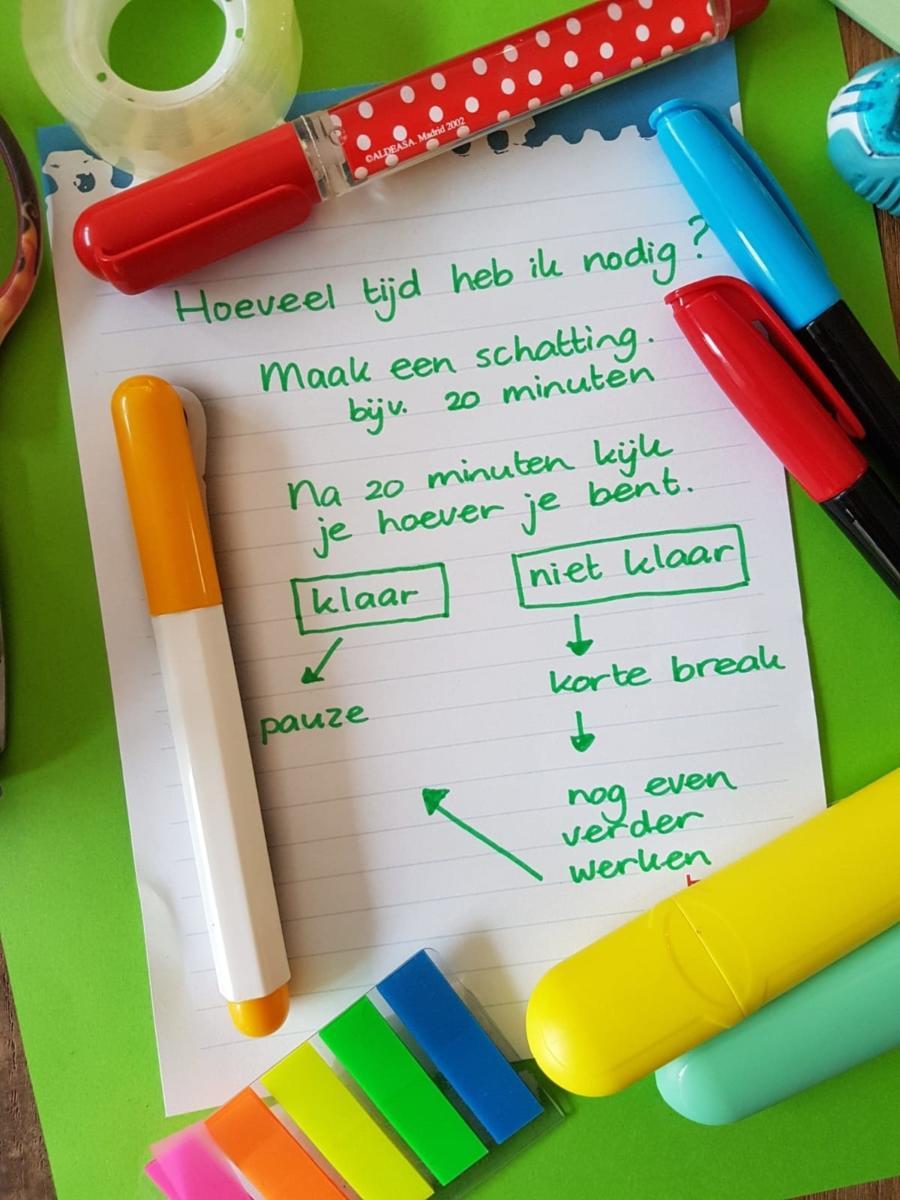 ©ALDEASA. Madrid 2002
Hoeveel tijd heb ik nodig?
Maak een schatting.
bijv. 20 minuten
Na 20 minuten kijk
je hoever je bent.
klaar
niet klaar
pauze
korte break
nog even
verder
werken